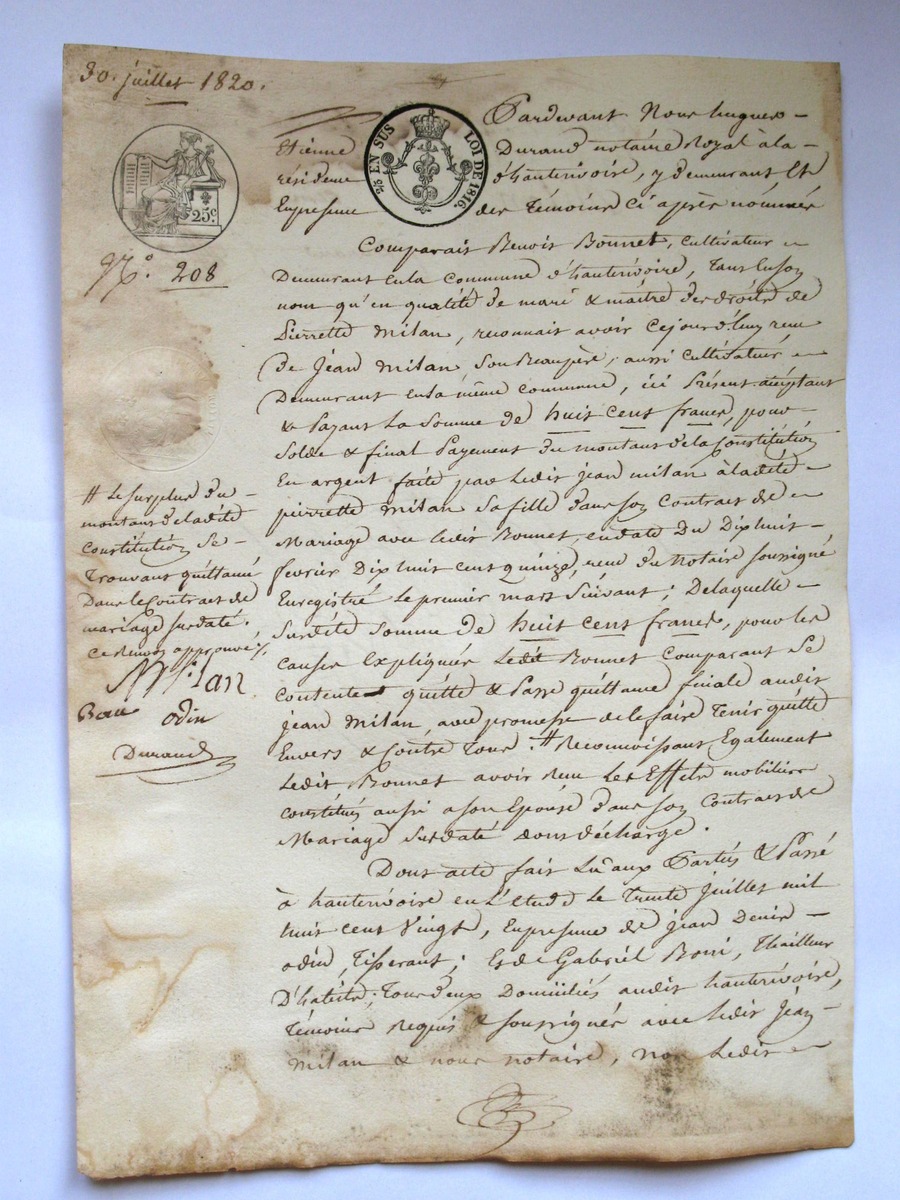 30. juillet 1820.
Pardevant Nous hugues
Etienne Durand notaire Royal à la
residence d'hauterivoire, y demeurant Et
En presence des Témoins Ci après nommés
2/10 EN SUS LOI DE 1816.
25c.
No. 208
Comparait Benoit Bonnet, Cultivateur
Demeurant en la Commune d'hauterivoire, Tant en son
nom qu'en qualité de mari & maître des droits de
Pierrette Milan, reconnait avoir cejourd'huy reçu
De Jean Milan Son Beaupère, aussi Cultivateur
Demeurant en la même Commune, ici Présent acceptant
& Payant La Somme de huit cent francs, pour
Solde & final Payement du montant de la Constitution
En argent faite par Ledit jean milan à ladite
pierrette Milan Sa fille dans son Contrat de
Mariage avec ledit Bonnet, en date du Dix huit
fevrier Dix huit cent quinze, reçu du Notaire soussigné
Enregistré Le premier mars Suivant; De laquelle
Susdite Somme de huit cent francs, pour les
causes Expliquées Ledit Bonnet Comparant Se
Contente quitte & Passe quittance finale audit
jean Milan, avec promesse de le faire Tenir quitte
Envers & Contre Tous. # Reconnoissant Egalement
Ledit Bonnet avoir reçu Les Effets mobiliers
constitués aussi a son Epouse dans son Contrat de
Mariage Susdaté dont décharge.
# Le Surplus du
montant de ladite
Constitution Se
Trouvant quittancé
Dans le Contrat de
mariage susdaté.
Ce Renvoi approuvé
Milan
odin
Durand
Dont acte fait Lû aux Parties & Passé
à hauterivoire en L'étude Le Trente Juillet mil
huit cent Vingt, En presence de Jean Denis
odin, Tisserant; Et de Gabriel Tailleur
D'habits; Tous deux Domiciliés audit hauterivoire,
Témoins Requis & soussignés avec Ledit Jean
Milan & nous notaire, non Ledit